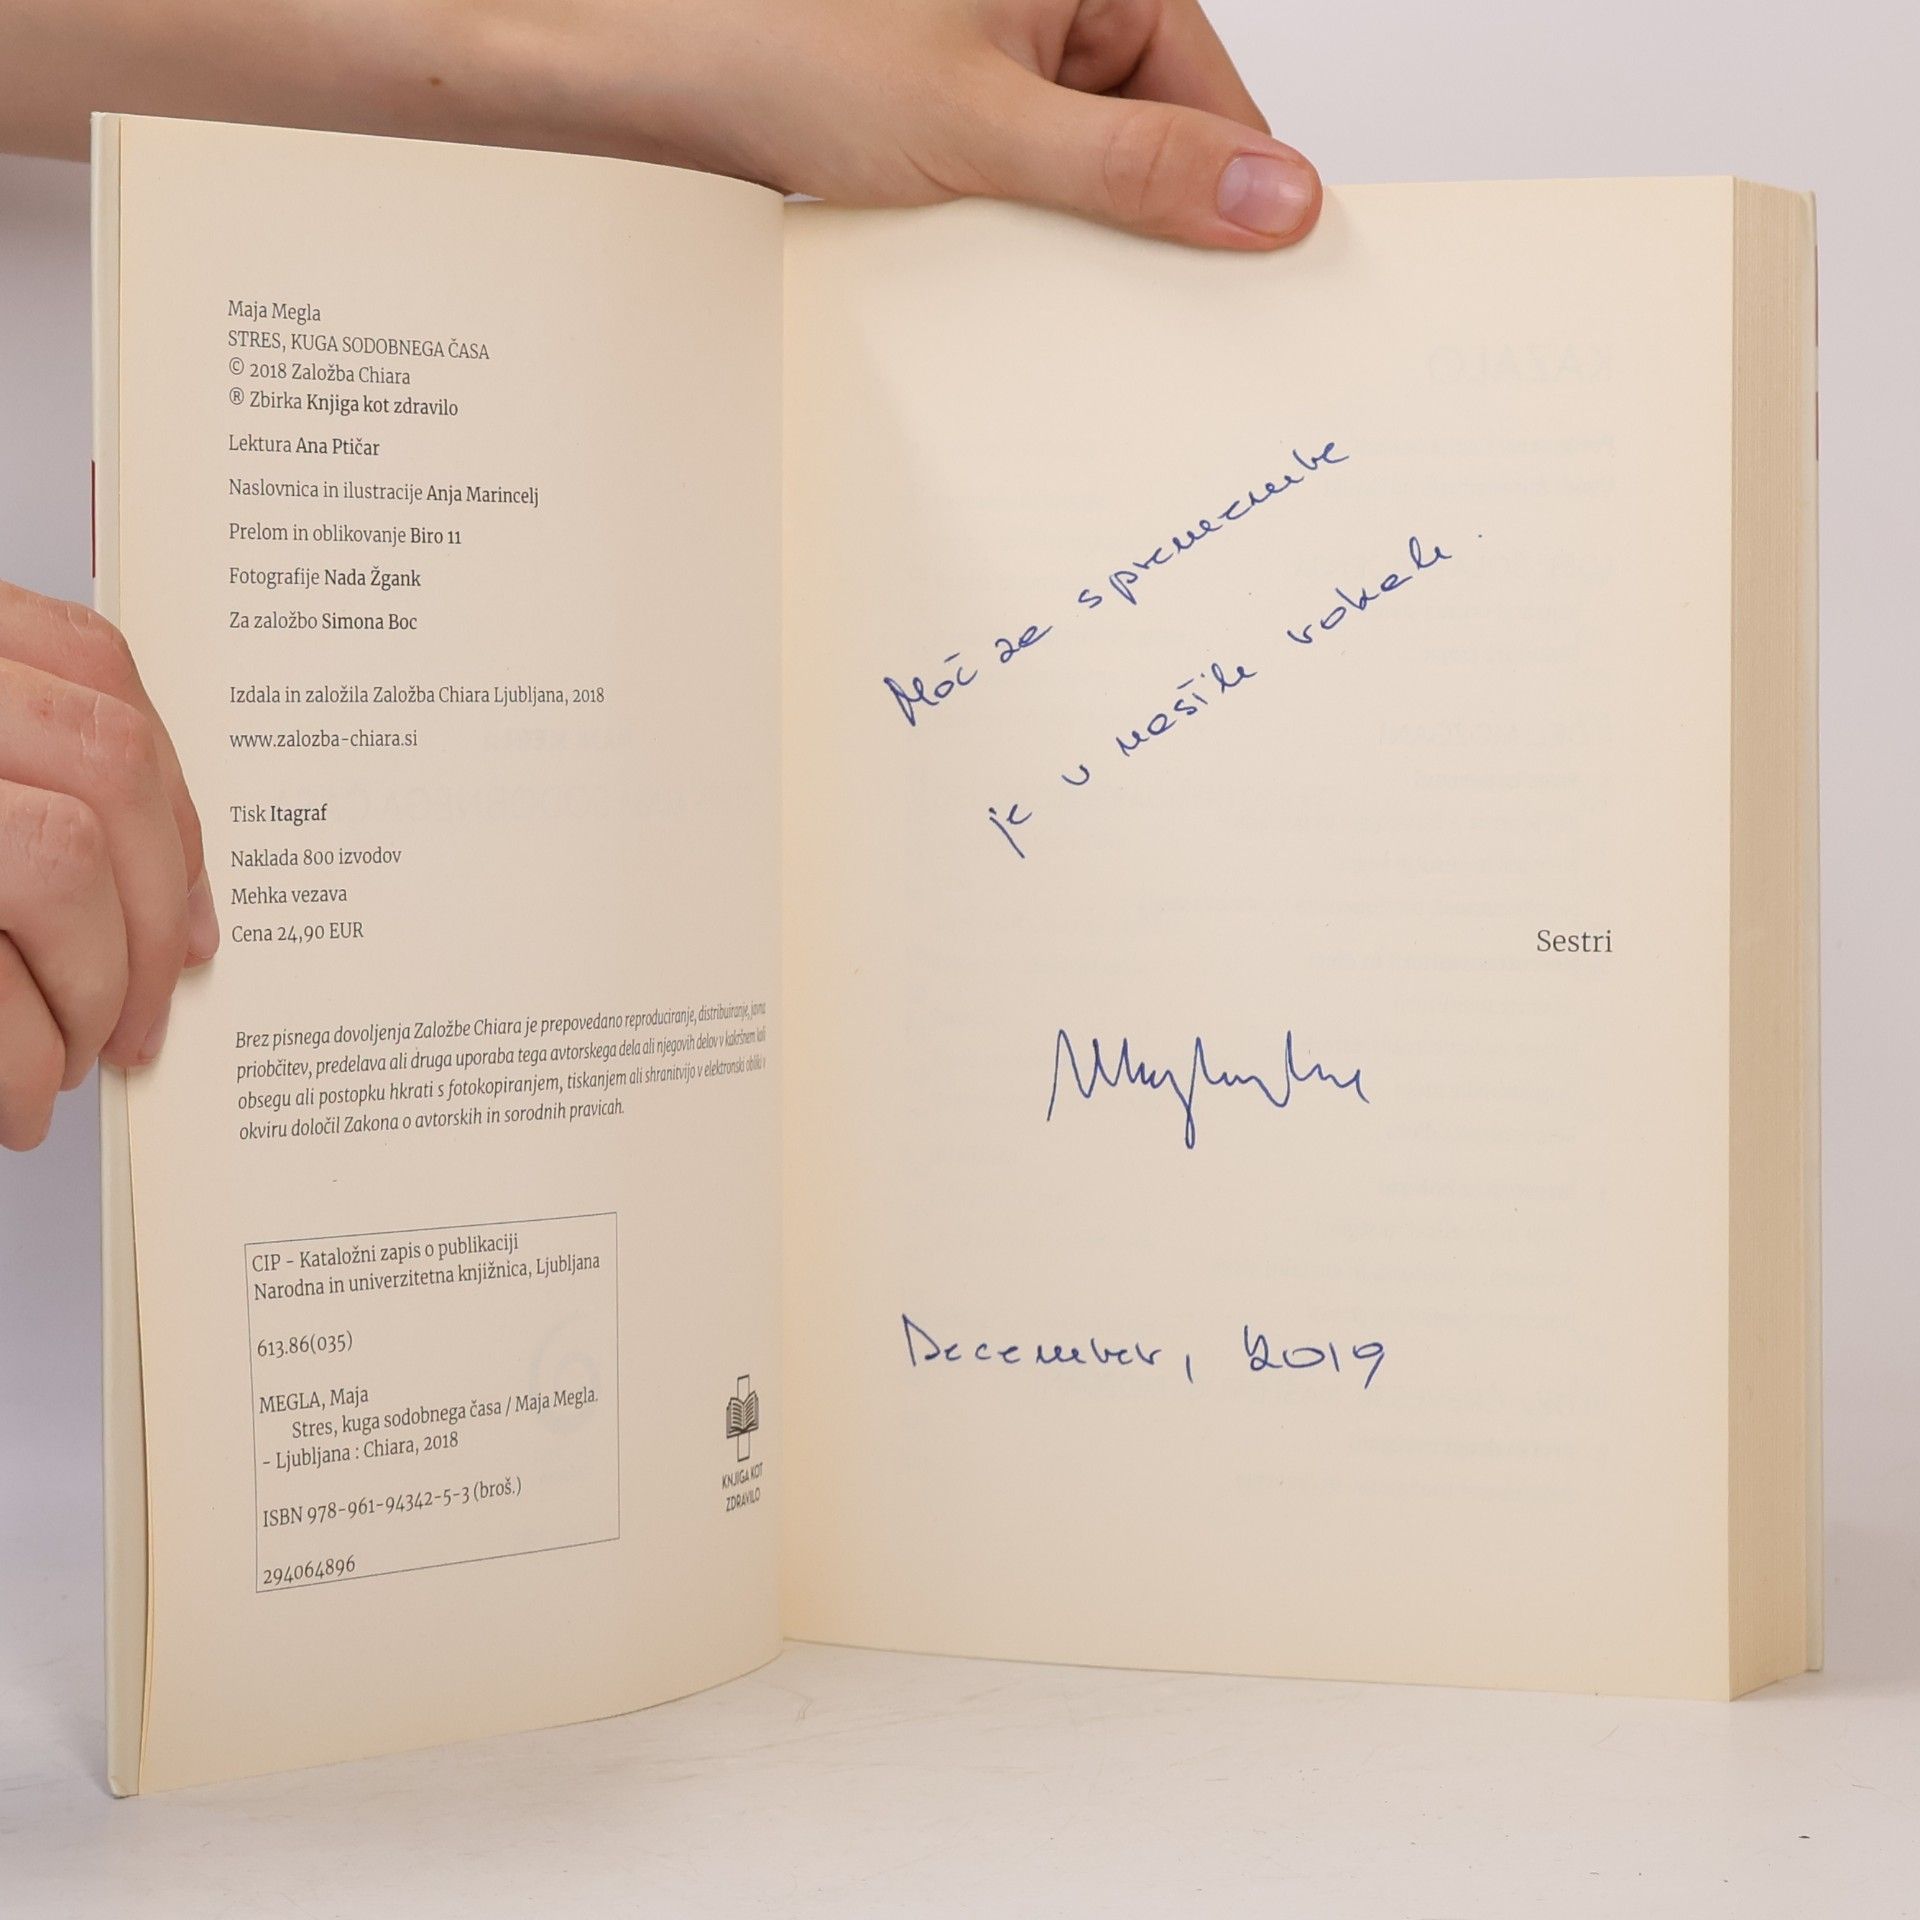 Maja Megla
STRES, KUGA SODOBNEGA ČASA
© 2018 Založba Chiara
® Zbirka Knjiga kot zdravilo
Lektura Ana Ptičar
Naslovnica in ilustracije Anja Marincelj
Prelom in oblikovanje Biro 11
Fotografije Nada Žgank
Za založbo Simona Boc
Izdala in založila Založba Chiara Ljubljana, 2018
www.zalozba-chiara.si
Tisk Itagraf
Naklada 800 izvodov
Mehka vezava
Cena 24,90 EUR
Brez pisnega dovoljenja Založbe Chiara je prepovedano reproduciranje, distribuiranje, javna
priobčitev, predelava ali druga uporaba tega avtorskega dela ali njegovih delov v kakršnem koli
obsegu ali postopku hkrati s fotokopiranjem, tiskanjem ali shranitvijo v elektronski obliki v
okviru določil Zakona o avtorskih in sorodnih pravicah.
CIP - Kataložni zapis o publikaciji
Narodna in univerzitetna knjižnica, Ljubljana
613.86(035)
MEGLA, Maja
Stres, kuga sodobnega časa / Maja Megla.
- Ljubljana : Chiara, 2018
ISBN 978-961-94342-5-3 (broš.)
294064896
KNJIGA KOT
ZDRAVILO
Moč za spremembe
je v naših rokah.
Sestri
December, 2019